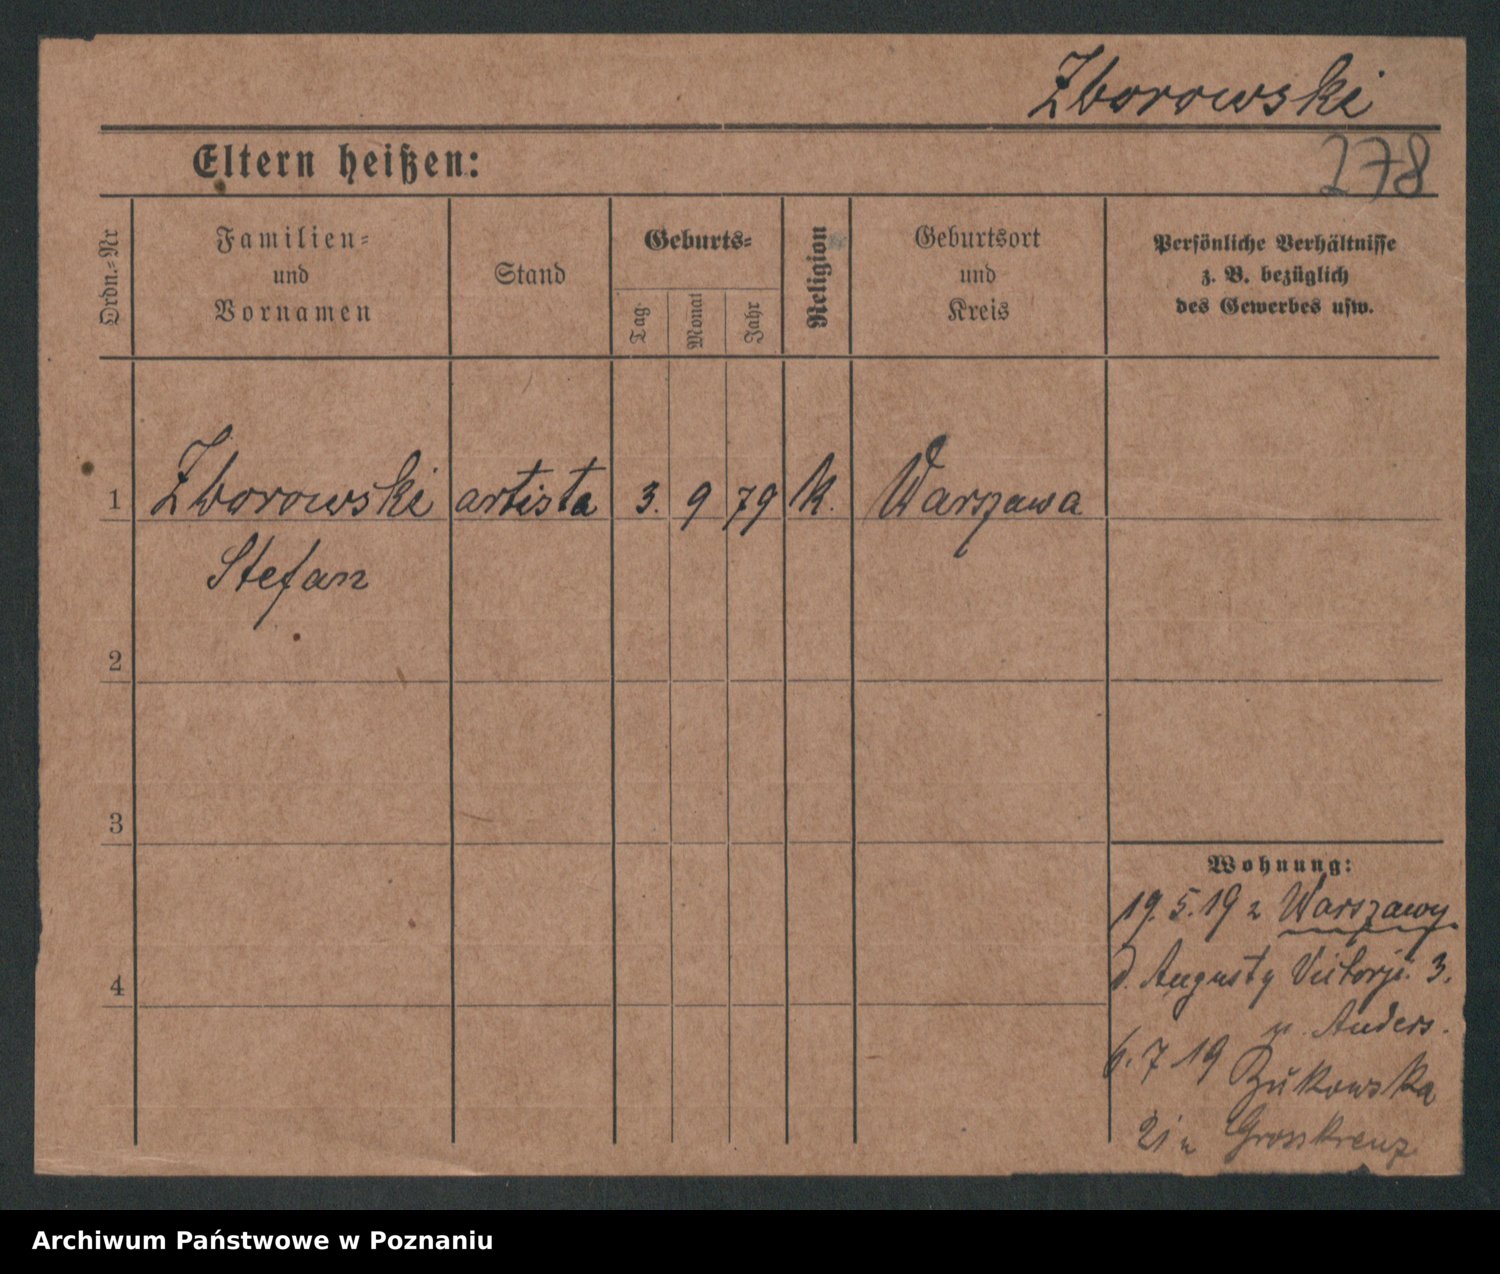 Zborowski
Eltern heißen:
278
Ordn.=Nr
Familien=
und
Vornamen
Stand
Geburts=
Tag
Monat
Jahr
Religion
Geburtsort
und
Kreis
Persönliche Verhältnisse
z. B. bezüglich
des Gewerbes usw.
1 Zborowski artista 3. 9 79 K. Warszawa
Stefan
2
3
4
Wohnung:
19.5.19 z Warszawy
Augusty Victorji 3.
u. Anders.
6.7 19 Bukowska
21 u Grosskreuz
Archiwum Państwowe w Poznaniu